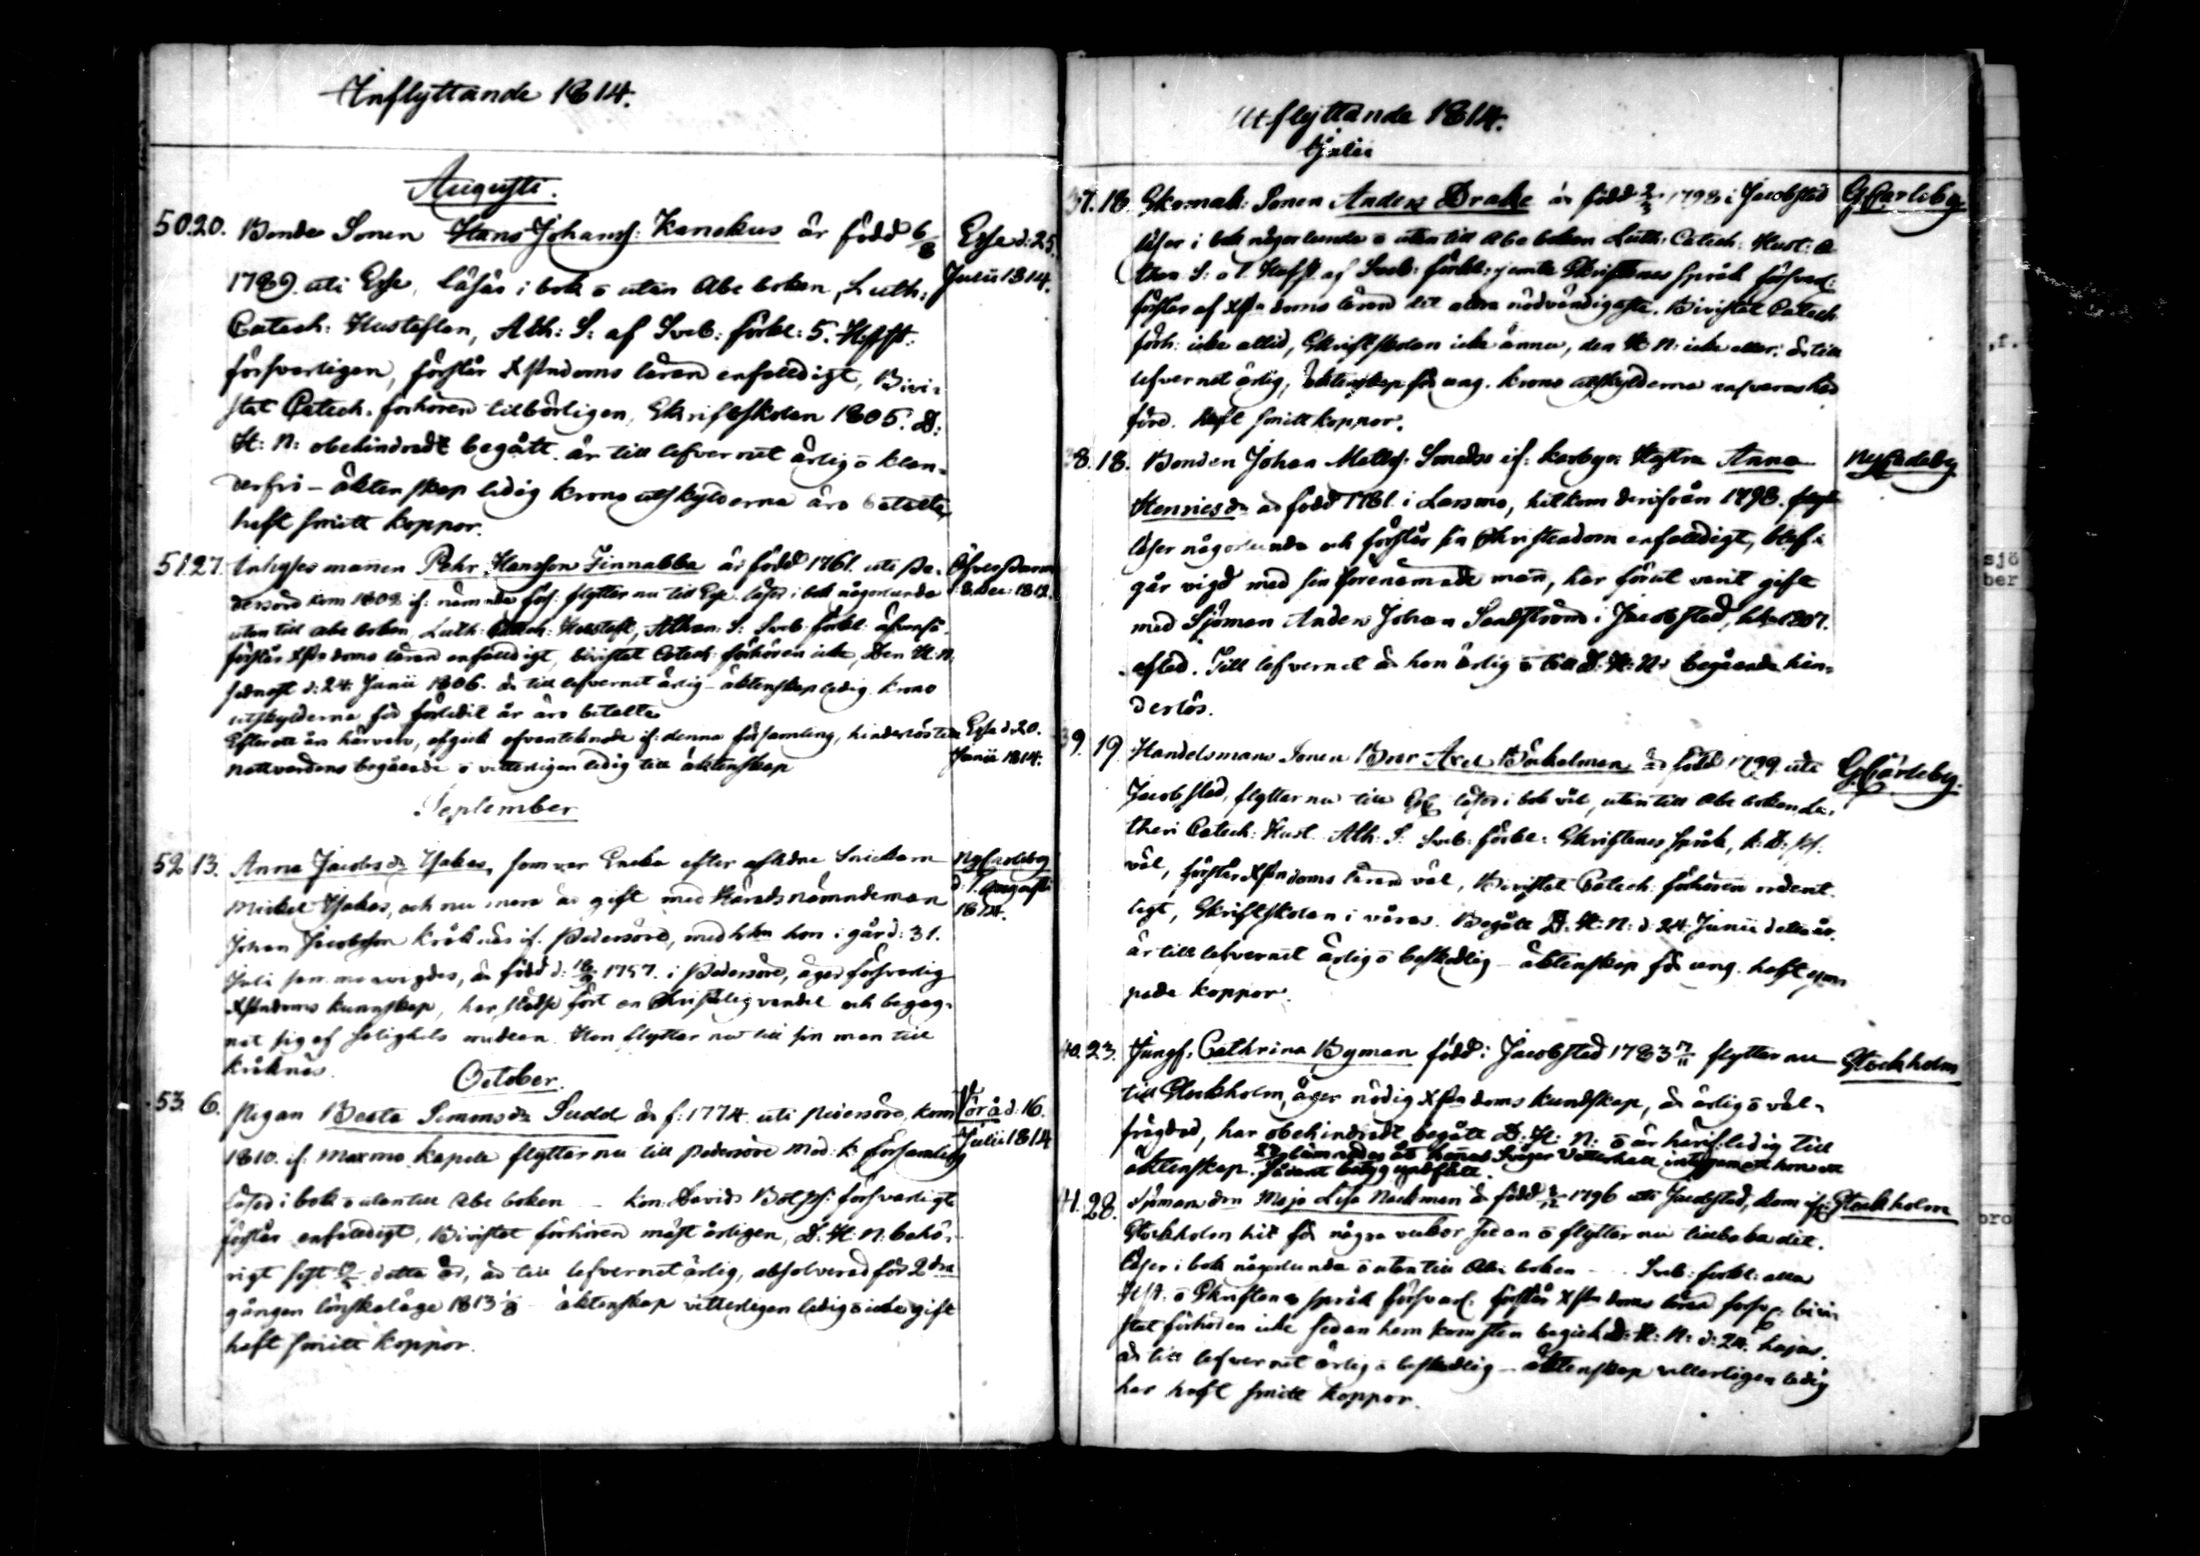 Inflyttande 1814.
Augusti.
50. 20. Bonde Sonen Hans Johanss: Kanckus är född 6/8
1789 uti Esse, läser i bok o utan Abc boken, Luth:
Catech: Hustaflan, Ath: S: af Sveb: förkl: 5. H.st.
försvarligen, förstår Xstndoms läran enfaldigt, Bivi-
stat Catech. förhören tilbörligen, Skriftskolan 1805. D:
H: N: obehindradt begått. är till lefvernet ärlig o klan-
derfri – äktenskap ledig krono utskylderna äro betalte
haft smitt koppor.
Esse d: 25.
Julii 1814.
51. 27. Inhyses mannen Pehr Hansson Finnabba är född 1761. uti Pe-
dersöre kom 1808 if: nämnde förs: flyttar nu till Esse läser i bok någorlunda
utan till Abc boken, Luth: Catech: Hustafl, Athan: S: Sveb: förkl:
förstår Xstndoms läran enfaldigt, bivistat Catech: förhören icke, Den H: N:
sednast d: 24. Junii 1806. är till lefvernet ärlig – äktenskap ledig. krono
utskylderna för förledit år äro betalte
Efter ett års härvaro, afgick ofvantecknade if: denna församling, hinderlös till
Nattvardens begående o vitterligen ledig till äktenskap
d: 8. Dec: 1812.
Esse d: 20.
Junii 1814.
September
52. 13. Anna Jacobs dr Jakas, som var Encka efter aflidne Snickarn
Mickel Jakas, och nu mera är gift med Häradsnämndeman
Johan Jacobsson Kråknäs if. Pedersöre, med hvilken hon i går d: 31.
Juli 1757. i Pedersöre, äger försvarlig
Xstndoms kunnskap, har städse fört en Christelig vandel och begag-
nat sig af salighets medlen. Hon flyttar nu till sin man till
Kråknäs.
NyCarleby
d: 1. Augusti
1814.
October.
53. 6. Pigan Beata Simons dr Sudd är f: 1774. uti Pedersöre, kom
1810. if: Maxmo kapell flyttar nu till Pedersöre Mod: k: församling
läser i bok o utan till Abc boken – Kon. Davids Bot ps: försvarligt
förstår enfaldigt, Bivistat förhören mäst årligen, D. H. N. behö-
rigt sist detta år, är till lefvernet ärlig, absolverad för 2dra
gången lönskaläge 1813 äktenskap vitterligen ledig o icke gift
haft smitt koppor.
Vörå d: 16.
Julii 1814
Utflyttande 1814.
Julii
37. 18. Skomak: Sonen Anders Drake är född 2/3 1798 i Jacobstad
läser i bok någorlunda o utan till Abc boken Luth: Catech: Hust: A
than: S: o 1. H.st. af Sveb: förkl: jemte Skriftenes språk försvarl:
förstår af Xstndoms läran det allra nödvändigaste. Bivistat Catech.
förh: icke altid, Skriftskolan icke ännu, den H: N: icke eller. är till
lefvernet ärlig, äktenskap för ung. krono utskylderna
före. haft smitt koppor.
G:Carleby.
38. 18. Bonden Johan Matts: Smeds if: karby: Hustru Anna
Henrics dr är född 1761 i Larsmo, hitkom derifrån 1798.
läser någorlunda och förstår sin Christendom enfaldigt, blef i
går vigd med sin förenämnde man, har förut varit gift
med Sjöman Anders Johan Sandström i Jacobstad, 1807.
afled. Till lefvernet är hon ärlig o till D: H: N: begående hin-
derlös.
NyCarleby
39. 19. Handelsmans Sonen Bror Axel Bäckelman är född 1799 uti
Jacobstad, flyttar nu till läser i bok väl, utan till Abc boken Lu-
theri Catech: Hust. Ath: S: Sveb: förkl: Skriftenes Språk, k: D: ps.
väl, förstår Xstndoms läran väl, Bivistat Catech. förhören ordent-
ligt, Skriftskolan i våras. Begått D: H: N: d: 24. Junii detta år.
är till lefvernet ärlig o beskedlig – äktenskap för ung. haft ym-
pade koppor.
G:Carleby.
40. 23. Jungf: Cathrina Byman född i Jacobstad 1783 flyttar nu
till Stockholm, äger nödig Xstndoms kundskap, är ärlig o väl-
frägdad, har obehindradt begått D: H: N: o är härifr. ledig till
äktenskap. hennes Svåger
sådant betyg
Stockholm
41. 28. Sjömans drn Maja Lisa Näckman är född 1796 uti Jacobstad, kom ifr:
Stockholm hit för några veckor sedan o flyttar nu tillbaka dit.
läser i bok någorlunda o utan till Abc boken – Sveb: förkl: alla
H.st. o Skriftenes språk försvarl: förstår Xstndoms läran förs: bivi-
stat förhören icke sedan hemkomsten begick D: H: N: d: 24.
är till lefvernet ärlig o beskedlig – äktenskap vitterligen ledig
har haft smitt koppor.
Stockholm
sjö
ber